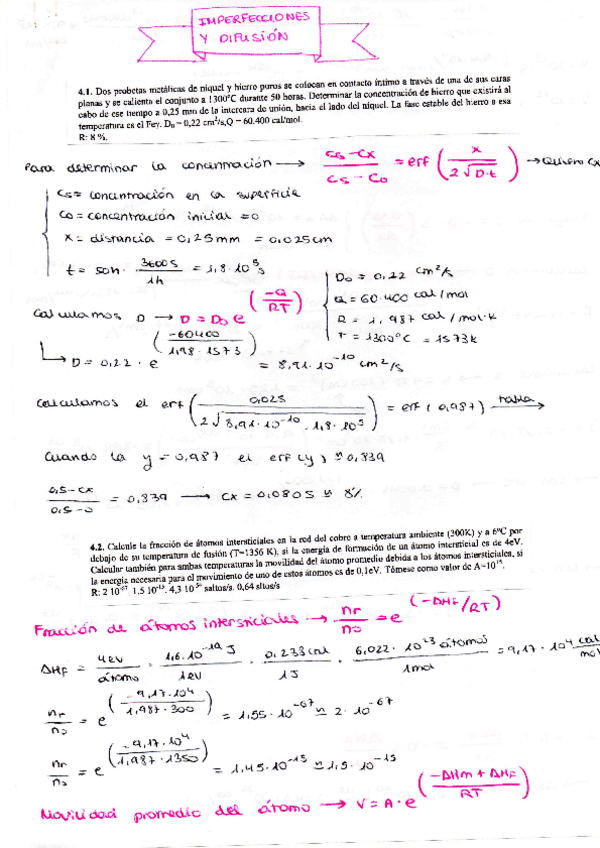 IMPERFECCIONES
Y DIFUSIÓN
4.1. Dos probetas metálicas de níquel y hierro puros se colocan en contacto íntimo a través de una de sus caras
planas y se calienta el conjunto a 1300°C durante 50 horas. Determinar la concentración de hierro que existirá al
cabo de ese tiempo a 0,25 mm de la intercara de unión, hacia el lado del níquel. La fase estable del hierro a esa
temperatura es el Feγ. D₀ = 0,22 cm²/s, Q = 60.400 cal/mol.
R: 8 %.
Para determinar la concentración → (Cs-Cx)/(Cs-Co) = erf (x/(2√D·t)) → Quiero Cx
Cs = concentración en la superficie
Co = concentración inicial = 0
x = distancia = 0,25mm = 0,025cm
t = 50h · 3600s/1h = 1,8·10⁵ s
D₀ = 0,22 cm²/s
Q = 60.400 cal/mol
R = 1,987 cal/mol·K
T = 1300°C = 1573K
Calculamos D → D = D₀ e^(-Q/RT)
D = 0,22 · e^(-60400/(1,98·1573)) = 8,91·10⁻¹⁰ cm²/s
Calculamos el erf (0,025/(2√8,91·10⁻¹⁰·1,8·10⁵)) = erf (0,987) tabla →
Cuando la y = 0,987 el erf(y) ≈ 0,839
(0,5-Cx)/(0,5-0) = 0,839 → Cx = 0,0805 ≈ 8%
4.2. Calcule la fracción de átomos intersticiales en la red del cobre a temperatura ambiente (300K) y a 6°C por
debajo de su temperatura de fusión (T=1356 K), si la energía de formación de un átomo intersticial es de 4eV.
Calcular también para ambas temperaturas la movilidad del átomo promedio debida a los átomos intersticiales, si
la energía necesaria para el movimiento de uno de estos átomos es de 0,1eV. Tómese como valor de A=10¹⁵.
R: 2 10⁻⁶⁷ 1,5 10⁻¹⁵ saltos/s. 0,64 sltos/s
Fracción de átomos intersticiales → nr/n₀ = e^(-ΔHF/RT)
ΔHF = 4eV/átomo · 1,6·10⁻¹⁹ J/1eV · 0,238cal/1J · 6,022·10²³ átomos/1mol = 9,17·10⁴ cal/mol
nr/n₀ = e^(-9,17·10⁴/(1,987·300)) = 1,55·10⁻⁶⁷ ≈ 2·10⁻⁶⁷
nr/n₀ = e^(-9,17·10⁴/(1,987·1350)) = 1,45·10⁻¹⁵ ≈ 1,5·10⁻¹⁵
Movilidad promedio del átomo → V = A·e^(-ΔHm + ΔHF/RT)